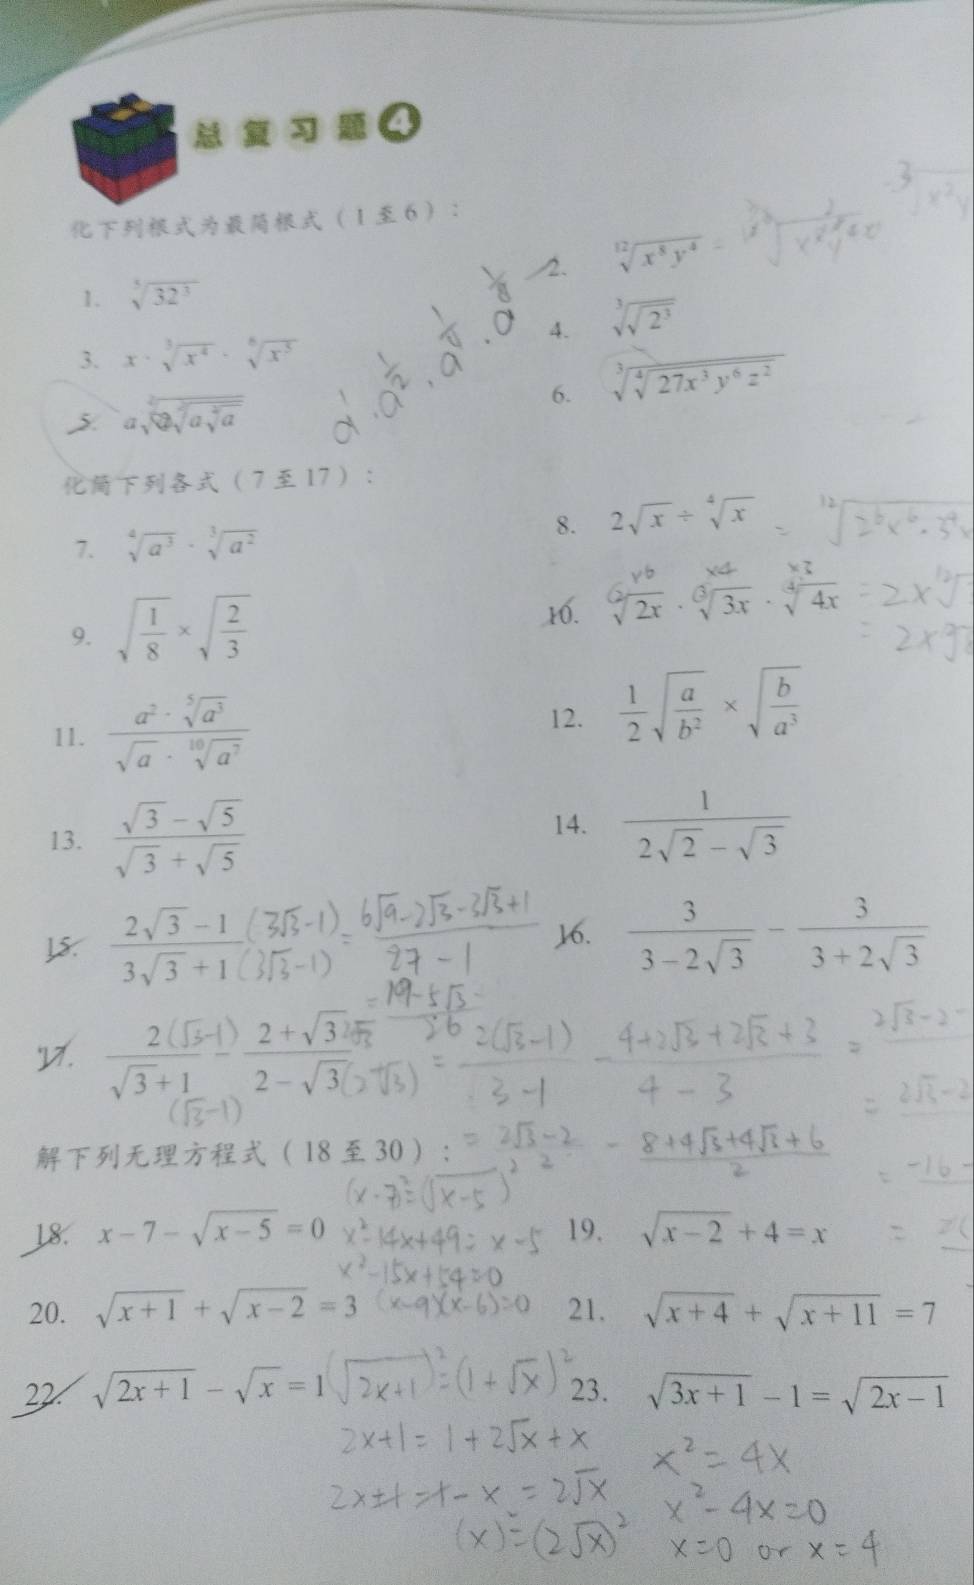 总复习题 4
化下列根式为最简根式（1至6）：
1. \sqrt[5]{32^3}
2. \sqrt[12]{x^8 y^4} =
3. x · \sqrt[3]{x^4} · \sqrt[6]{x^5}
4. \sqrt[3]{\sqrt{2^3}}
a^1 · a^{1/2} · a^{1/4} · a^{1/8}
6. \sqrt[3]{\sqrt[4]{27x^3 y^6 z^2}}
化简下列各式（7至17）：
7. \sqrt[4]{a^3} · \sqrt[3]{a^2}
8. 2\sqrt{x} ÷ \sqrt[4]{x}
9. \sqrt{1/8} × \sqrt{2/3}
10. \sqrt[2]{2x} · \sqrt[3]{3x} · \sqrt[4]{4x}
×6 ×4 ×3
11. (a^2 · \sqrt[5]{a^3}) / (\sqrt{a} · \sqrt[10]{a^7})
12. 1/2 \sqrt{a/b^2} × \sqrt{b/a^3}
13. (\sqrt{3} - \sqrt{5}) / (\sqrt{3} + \sqrt{5})
14. 1 / (2\sqrt{2} - \sqrt{3})
15. (2\sqrt{3} - 1)(3\sqrt{3} - 1) / (3\sqrt{3} + 1)(3\sqrt{3} - 1) = (6\sqrt{9} - 2\sqrt{3} - 3\sqrt{3} + 1) / (27 - 1)
= (19 - 5\sqrt{3}) / 26
16. 3 / (3 - 2\sqrt{3}) - 3 / (3 + 2\sqrt{3})
17. 2(\sqrt{3} - 1) / (\sqrt{3} + 1)(\sqrt{3} - 1) - (2 + \sqrt{3}) / (2 - \sqrt{3})(2 + \sqrt{3}) = 2(\sqrt{3} - 1) / (3 - 1) - (4 + 2\sqrt{3} + 2\sqrt{3} + 3) / (4 - 3)
= (2\sqrt{3} - 2) / 2 - (8 + 4\sqrt{3} + 4\sqrt{3} + 6) / 2
解下列无理方程式（18至30）：
(x - 7)^2 = (\sqrt{x - 5})^2
18. x - 7 - \sqrt{x - 5} = 0
x^2 - 14x + 49 = x - 5
19. \sqrt{x - 2} + 4 = x
x^2 - 15x + 54 = 0
20. \sqrt{x + 1} + \sqrt{x - 2} = 3
(x - 9)(x - 6) = 0
21. \sqrt{x + 4} + \sqrt{x + 11} = 7
22. \sqrt{2x + 1} - \sqrt{x} = 1
(\sqrt{2x + 1})^2 = (1 + \sqrt{x})^2
23. \sqrt{3x + 1} - 1 = \sqrt{2x - 1}
2x + 1 = 1 + 2\sqrt{x} + x
x^2 = 4x
2x + 1 - 1 - x = 2\sqrt{x}
x^2 - 4x = 0
(x)^2 = (2\sqrt{x})^2
x = 0 or x = 4